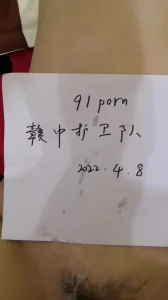 91 porn
赣中护卫队
2022.4.8